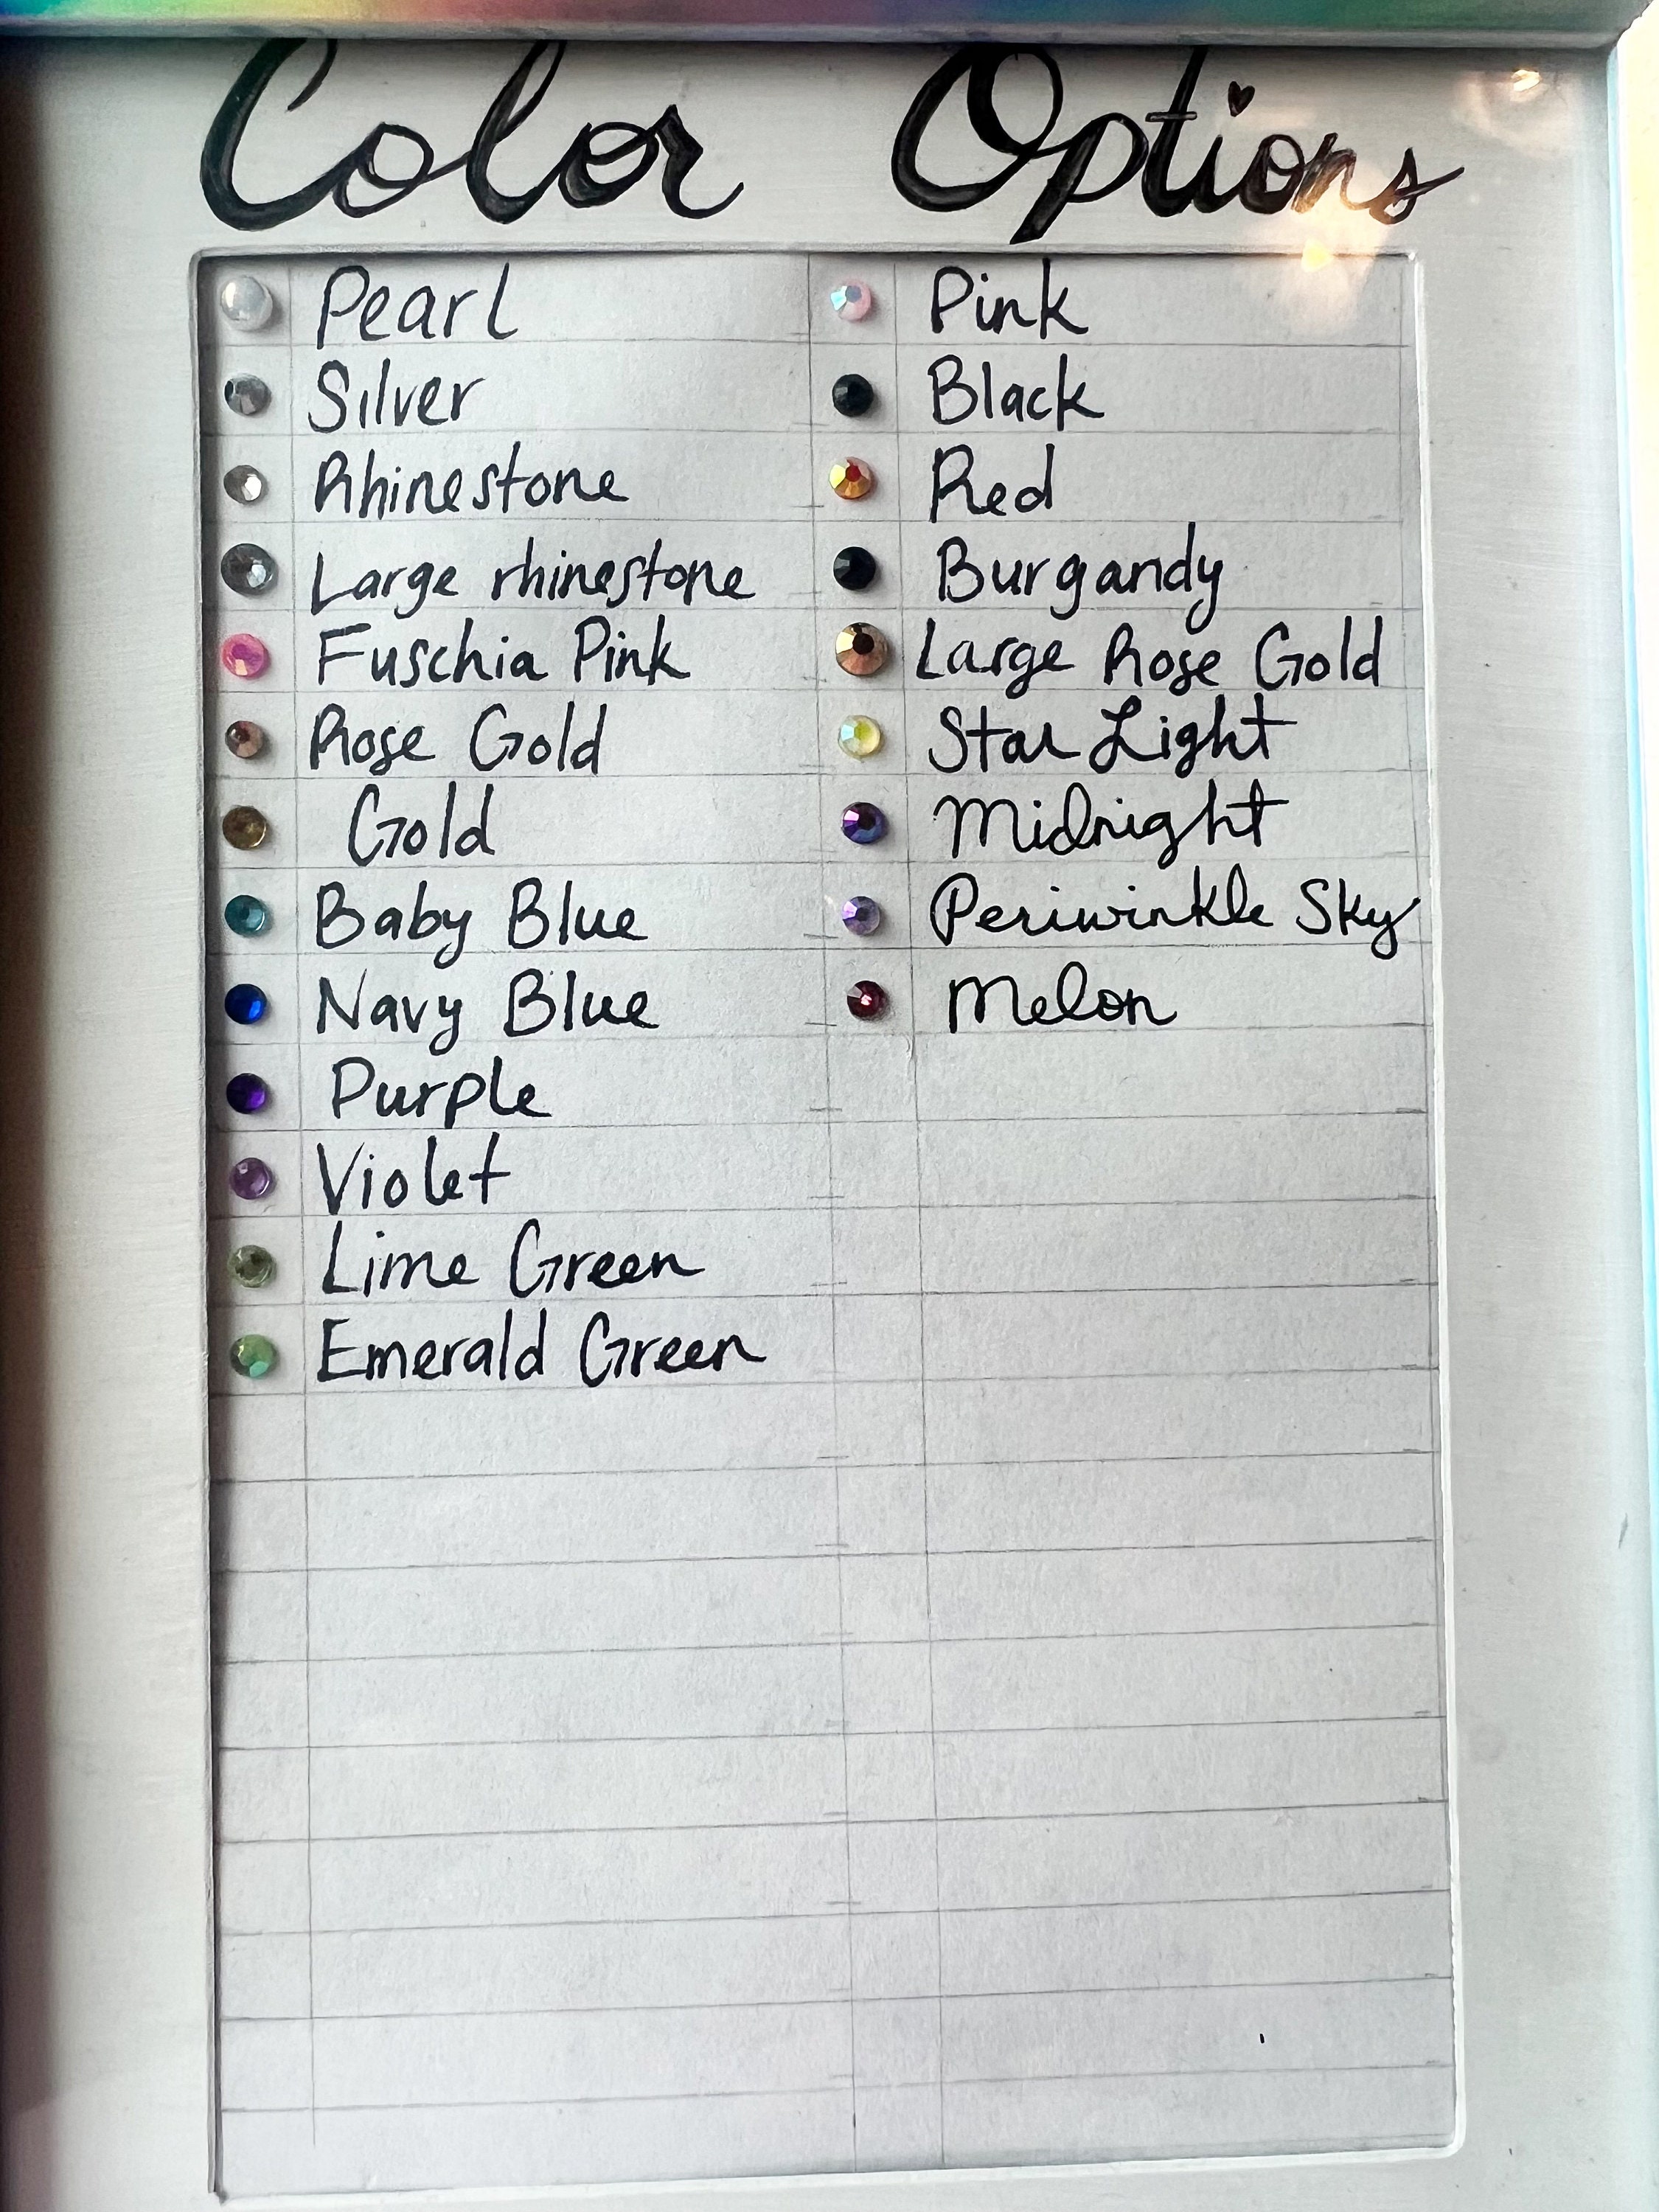 Color Options
Pearl
Silver
Rhinestone
Large rhinestone
Fuschia Pink
Rose Gold
Gold
Baby Blue
Navy Blue
Purple
Violet
Lime Green
Emerald Green
Pink
Black
Red
Burgandy
Large Rose Gold
Star Light
Midnight
Periwinkle Sky
Melon